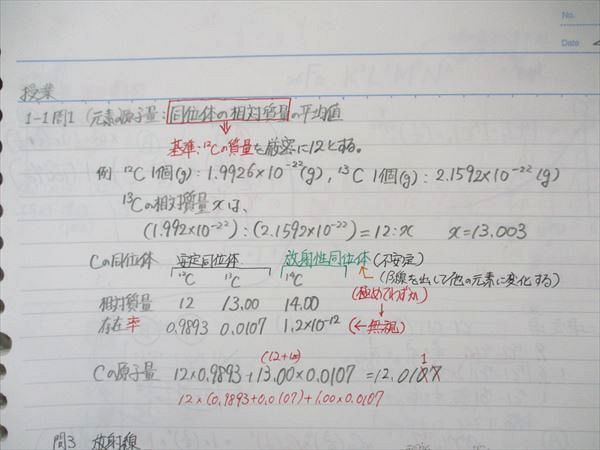 No.
Date
授業
1-1 問1 (元素の原子量:同位体の相対質量の平均値
基準:¹²Cの質量を厳密に12とする。
例 ¹²C 1個(g):1.9926×10⁻²²(g), ¹³C 1個(g):2.1592×10⁻²²(g)
¹³Cの相対質量xは、
(1.992×10⁻²²):(2.1592×10⁻²²)=12:x x=13.003
Cの同位体 安定同位体 放射性同位体 (不安定)
¹²C ¹³C ¹⁴C (β線を出して他の元素に変化する)
相対質量 12 13.00 14.00 (極めてわずか)
存在率 0.9893 0.0107 1.2×10⁻¹² (←無視)
(12+1.00)
Cの原子量 12×0.9893+13.00×0.0107=12.0107
12×(0.9893+0.0107)+1.00×0.0107
問3 放射線